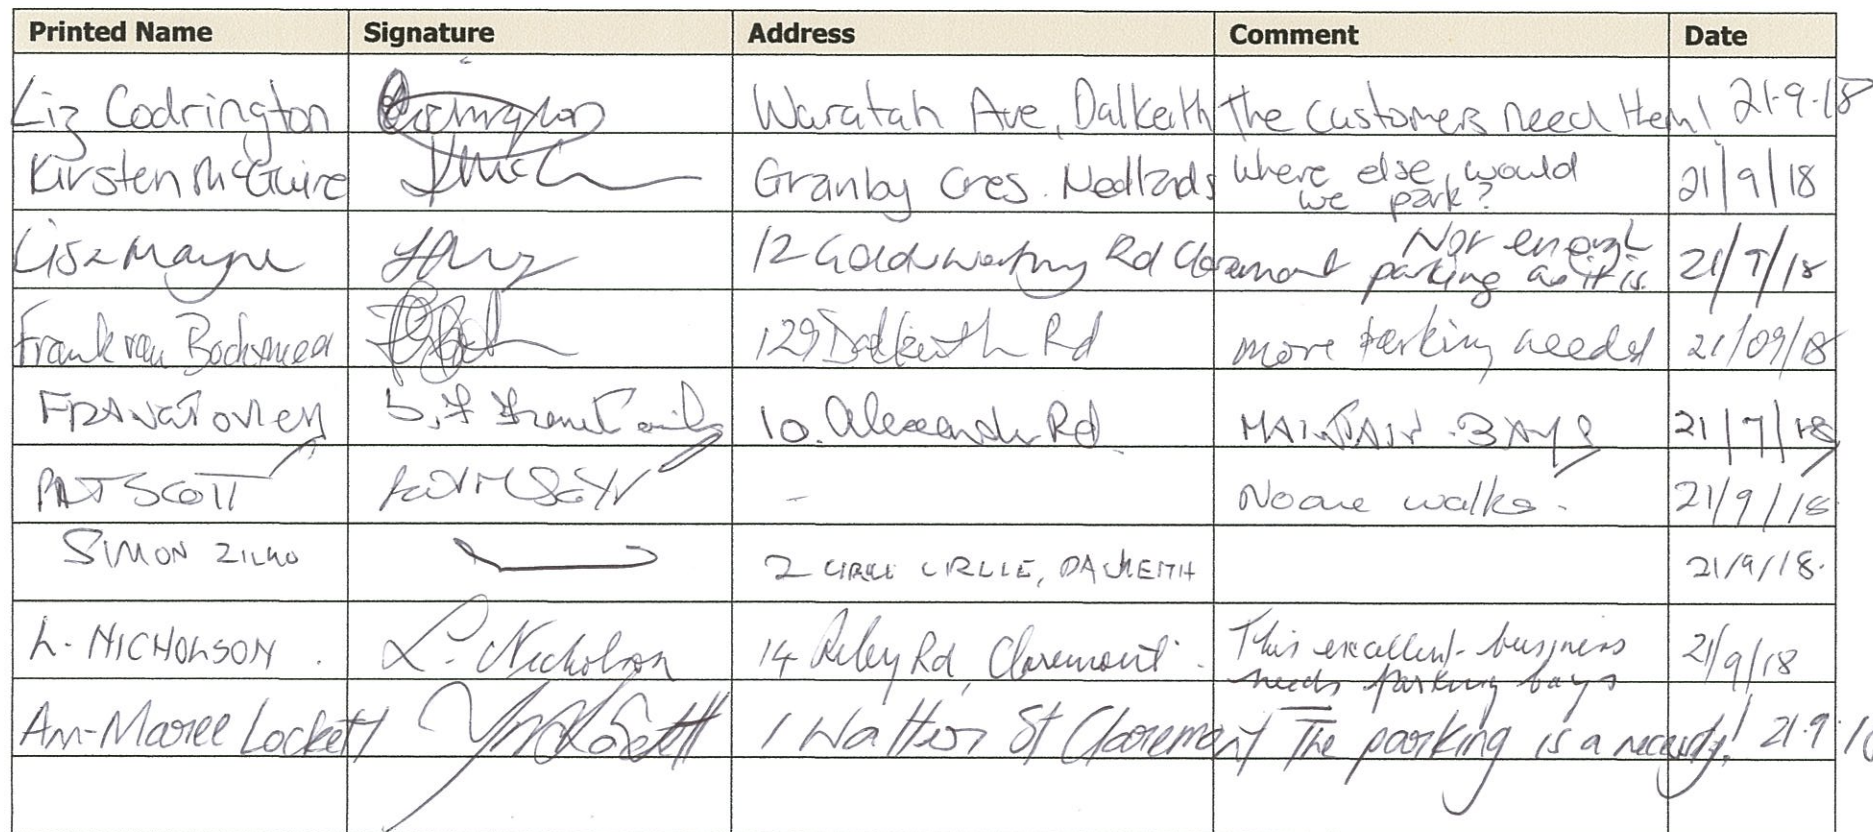 Printed Name Signature Address Comment Date
Liz Codrington Waratah Ave, Dalkeith The customers need them! 21.9.18
Kirsten McGuire Granby Cres. Nedlands Where else would
we park? 21/9/18
Lisa Mayne 12 Goldsworthy Rd Claremont Not enough
parking as it is. 21/9/18
Frank van 129 Dalkeith Rd more parking needed 21/09/18
10. Alexander Rd MAINTAIN BAYS 21/9/18
PAT SCOTT - No one walks. 21/9/18
SIMON ZILKO 2 CIRCE CIRCLE, DALKEITH 21/9/18.
L. NICHOLSON. L. Nicholson 14 Riley Rd, Claremont. This excellent business
needs parking bays 21/9/18
Ann-Maree Lockett 1 Walter St Claremont The parking is a necessity! 21.9.18